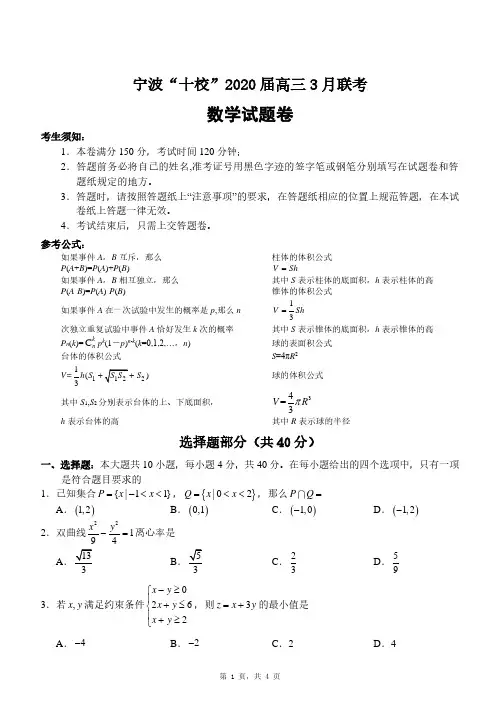 宁波“十校”2020届高三3月联考
数学试题卷
考生须知:
1.本卷满分150分,考试时间120分钟;
2.答题前务必将自己的姓名,准考证号用黑色字迹的签字笔或钢笔分别填写在试题卷和答
题纸规定的地方。
3.答题时,请按照答题纸上“注意事项”的要求,在答题纸相应的位置上规范答题,在本试
卷纸上答题一律无效。
4.考试结束后,只需上交答题卷。
参考公式:
如果事件A,B互斥,那么 柱体的体积公式
P(A+B)=P(A)+P(B) V = Sh
如果事件A,B相互独立,那么 其中S表示柱体的底面积,h表示柱体的高
P(A·B)=P(A)·P(B) 锥体的体积公式
如果事件A在一次试验中发生的概率是p,那么n V = 1/3 Sh
次独立重复试验中事件A恰好发生k次的概率 其中S表示锥体的底面积,h表示锥体的高
Pn(k)=C_n^k p^k(1-p)^(n-k)(k=0,1,2,…,n) 球的表面积公式
台体的体积公式 S=4πR²
V=1/3 h(S₁+√(S₁S₂)+S₂) 球的体积公式
其中S₁,S₂分别表示台体的上、下底面积, V=4/3 πR³
h表示台体的高 其中R表示球的半径
选择题部分(共40分)
一、选择题:本大题共10小题,每小题4分,共40分。在每小题给出的四个选项中,只有一项
是符合题目要求的
1.已知集合P={x|-1<x<1},Q={x|0<x<2},那么P∩Q=
A.(1,2) B.(0,1) C.(-1,0) D.(-1,2)
2.双曲线x²/9-y²/4=1离心率是
A.√13/3 B.√5/3 C.2/3 D.5/9
3.若x,y满足约束条件{x-y≥0, 2x+y≤6, x+y≥2,则z=x+3y的最小值是
A.-4 B.-2 C.2 D.4
第 1 页,共 4 页